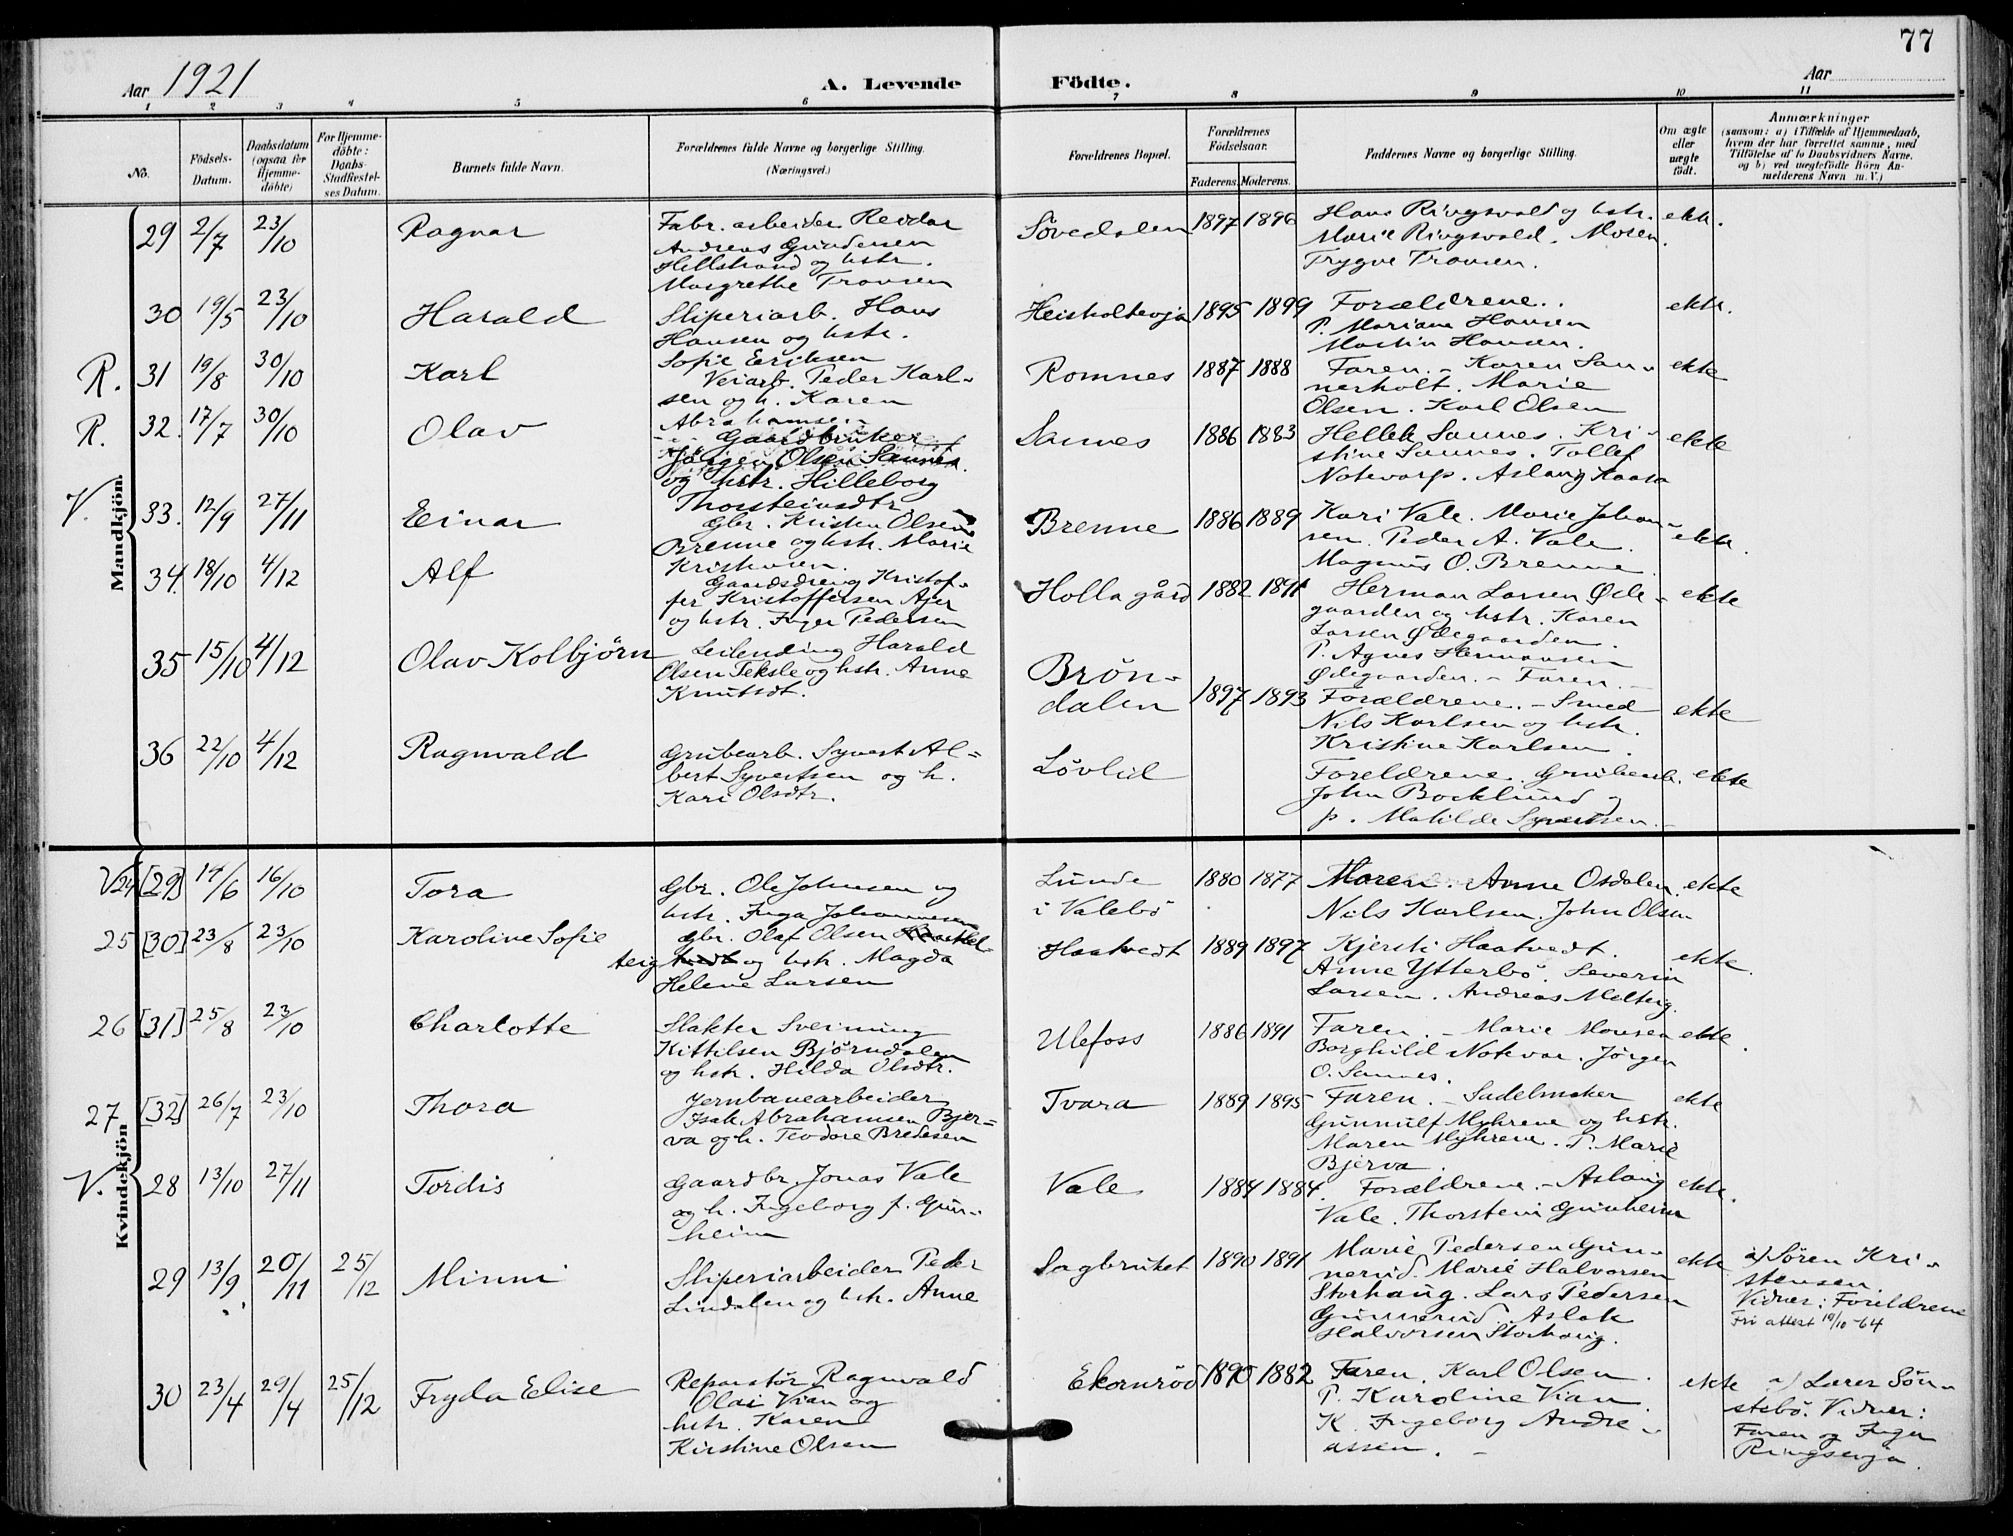 77
Aar 1921
A. Levende Födte.
Aar
1 2 3 4 5 6 7 8 9 10 11
No.
Födsels-Datum.
Daabsdatum (ogsaa for Hjemme-döbte)
For Hjemme-döbte: Daabs-Stadfæstel-ses Datum.
Barnets fulde Navn.
Forældrenes fulde Navne og borgerlige Stilling. (Næringsvei.)
Forældrenes Bopæl.
Forældrenes Födselsaar.
Faderens. Moderens.
Faddernes Navne og borgerlige Stilling.
Om ægte eller uægte födt.
Anmærkninger
(saasom: a) i Tilfælde af Hjemmedaab, hvem der har forrettet samme, med Tilföielse af to Daabsvidners Navne, og b) ved uægtefödte Börn An-melderens Navn m. V.)
Mandkjön.
29 2/7 23/10 Ragnar
Fabr. arbeider Reidar
Andreas Gundersen
Hellstrand og hstr.
Margrethe Fransen
Sövedalen 1897 1896
Hans Ringsvold og hstr.
Marie Ringsvold. Mosen.
Trygve Fransen.
ekte.
30 19/5 23/10 Harald
Sliperiarb. Hans
Hansen og hstr.
Sofie Eriksen
Heisholtevja 1895 1899
Forældrene.
P. Mariane Hansen
Martin Hansen.
ekte.
R. 31 19/8 30/10 Karl
Veiarb. Peder Karl-
sen og h. Karen
Abrahamsen
Romnes 1887 1888
Faren. - Karen San-
nerholt. Marie
Olsen. Karl Olsen
ekte
R. 32. 17/7 30/10 Olav
Gaardbruker
Jörgen Olsen Sannes
og hstr. Hilleborg
Thorsteinsdtr
Sannes 1886 1883
Hellek Sannes. Kri-
stine Sannes. Tollef
Notevarp. Aslaug Kaasa
ekte
V. 33. 12/9 27/11 Einar
Gbr. Kristen Olsen
Brenne og hstr. Marie
Kristensen.
Brenne 1886 1889
Kari Vale. Marie Johan-
sen. Peder A. Vale.
Magnus O. Brenne.
ekte.
34. 18/10 4/12 Alf
Gaardsdreng Kristof-
fer Kristoffersen Ajer
og hstr. Inger Pedersen
Holla gård 1882 1891
Herman Larsen Øde-
gaarden og hstr. Karen
Larsen Ødegaarden.
P. Agnes Hermansen
Ødegaarden. - Faren. -
ekte
35 15/10 4/12 Olav Kolbjörn
Leilending Harald
Olsen Teksle og hstr. Anne
Knutsdt.
Brön-
dalen 1897 1893
Forældrene. - Smed
Nils Karlsen og hstr.
Kristine Karlsen.
ekte
36 22/10 4/12 Ragnvald
Grubearb. Syvert Al-
bert Syvertsen og h.
Kari Olsdtr.
Lövlid
Foreldrene. Grubearb.
John Bocklund og
p. Matilde Syvertsen. -
ekte
Kvindekjön
V 24 [29] 14/6 16/10 Tora
Gbr. Ole Johnsen og
hstr. Inga Johannesen
Lunde
i Valebö 1880 1877
Maren. Anne Osdalen.
Nils Karlsen. John Olsen
ekte
25 [30] 23/8 23/10 Karoline Sofie
Gbr. Olaf Olsen
teig og hstr. Magda
Helene Larsen
Haatvedt 1889 1897
Kjersti Haatvedt.
Anne Ytterbö. Severin
Larsen. Andreas Melteig.
ekte.
26 [31] 25/8 23/10 Charlotte
Slakter Sveinung
Kittilsen Björndalen
og hstr. Hilda Olsdtr.
Ulefoss 1886 1891
Faren. - Marie Monsen
Borghild Notevar. Jörgen
O. Sannes.
ekte.
27 [32] 26/7 23/10 Thora
Jernbanearbeider
Isak Abrahamsen Bjer-
va og h. Teodore Bredesen
Tvara 1889 1895
Faren. - Sadelmaker
Gunnulf Myhrene og hstr.
Maren Myhrene. P. Marie
Bjerva.
ekte
V. 28 13/10 27/11 Tordis
Gaardbr. Jonas Vale
og h. Ingeborg f. Gun-
heim
Vale 1884 1884.
Forældrene. - Aslaug
Vale. Thorstein Gunheim
ekte.
29 13/9 20/11 25/12 Minni
Sliperiarbeider Peder
Lindalen og hstr. Anne
Sagbruket 1890 1891
Marie Pedersen Gun-
nerud. Marie Halvorsen
Storhaug. Lars Pedersen
Gunnerud. Aslak
Halvorsen Storhaug.
ekte
a) Sören Kri-
stensen.
Vidner: Foreldrene
Fri attest 19/10-64
30 23/4 29/4 25/12 Fryda Elise
Reparatör Ragnvald
Olai Vian og
hstr. Karen
Kirstine Olsen
Ekornröd 1890 1882
Faren. Karl Olsen.
P. Karoline Vian.
K. Ingeborg Andre-
assen. -
ekte
a) Lærer Sön-
stebö. Vidner:
Faren og Inger
Ringsevja.